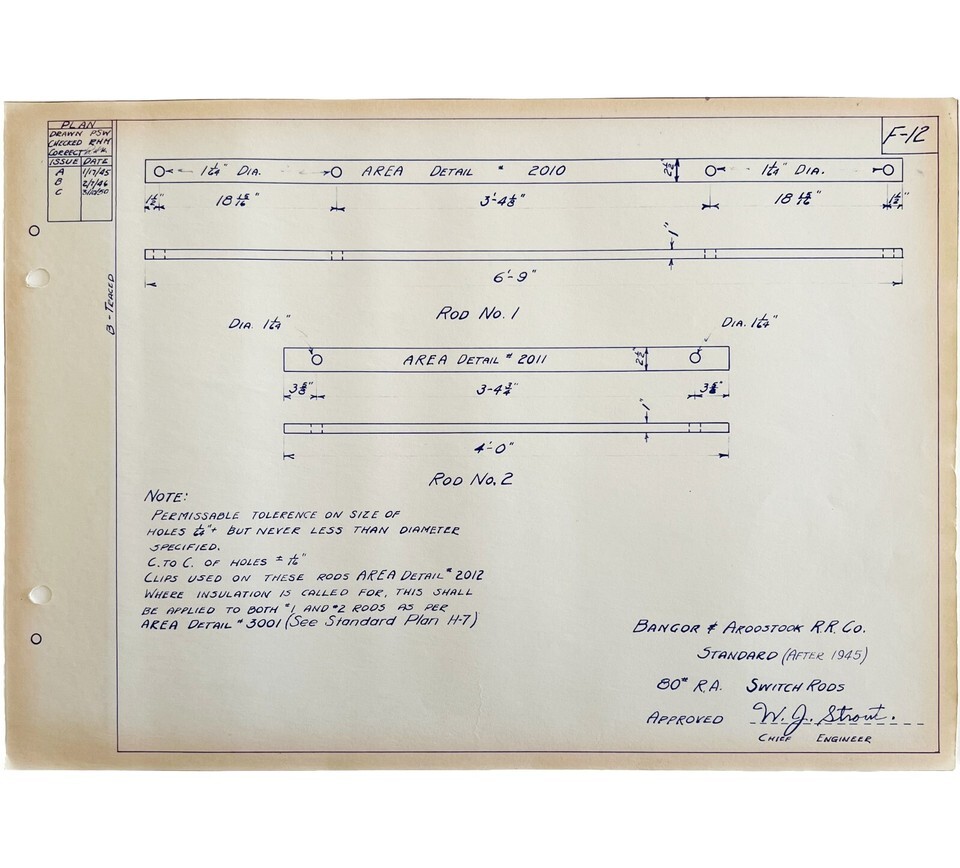 PLAN
DRAWN PSW
CHECKED RNM
CORRECT
ISSUE DATE
A 1/17/45
B 2/7/46
C
F-12
1 1/64" DIA. AREA DETAIL # 2010 2 1/2" 1 1/64" DIA.
1 1/2" 18 15/16" 3'-4 1/8" 18 15/16" 1 1/2"
1"
6'-9"
B - TRACED
ROD NO. 1
DIA. 1 1/64" DIA. 1 1/64"
AREA DETAIL # 2011 2 1/2"
3 5/8" 3-4 3/4" 3 5/8"
1"
4'-0"
ROD NO. 2
NOTE:
PERMISSABLE TOLERENCE ON SIZE OF
HOLES 1/64"+ BUT NEVER LESS THAN DIAMETER
SPECIFIED.
C. TO C. OF HOLES ± 1/16"
CLIPS USED ON THESE RODS AREA DETAIL # 2012
WHERE INSULATION IS CALLED FOR, THIS SHALL
BE APPLIED TO BOTH #1 AND #2 RODS AS PER
AREA DETAIL # 3001 (See Standard Plan H-7)
BANGOR & AROOSTOOK R.R. CO.
STANDARD (AFTER 1945)
80# R.A. SWITCH RODS
APPROVED W. J. Strout.
CHIEF ENGINEER